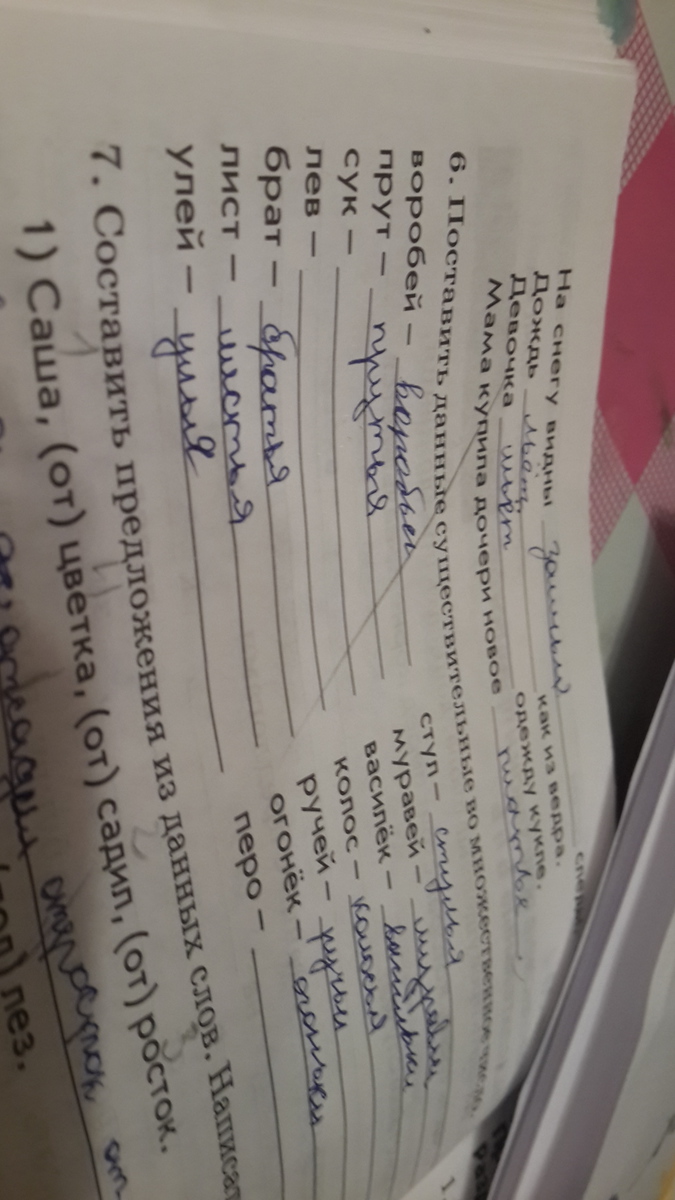 На снегу видны заячьи
Дождь льёт как из ведра.
Девочка шьёт одежду кукле.
Мама купила дочери новое платье
6. Поставить данные существительные во множественное число.
воробей – воробьи стул – стулья
прут – прутья муравей – муравьи
сук – василёк – васильки
лев – колос – колосья
брат – братья ручей – ручьи
лист – листья огонёк – огоньки
улей – улья перо –
7. Составить предложения из данных слов.
1) Саша, (от) цветка, (от) садил, (от) росток.
отсадил отросток от
лез.